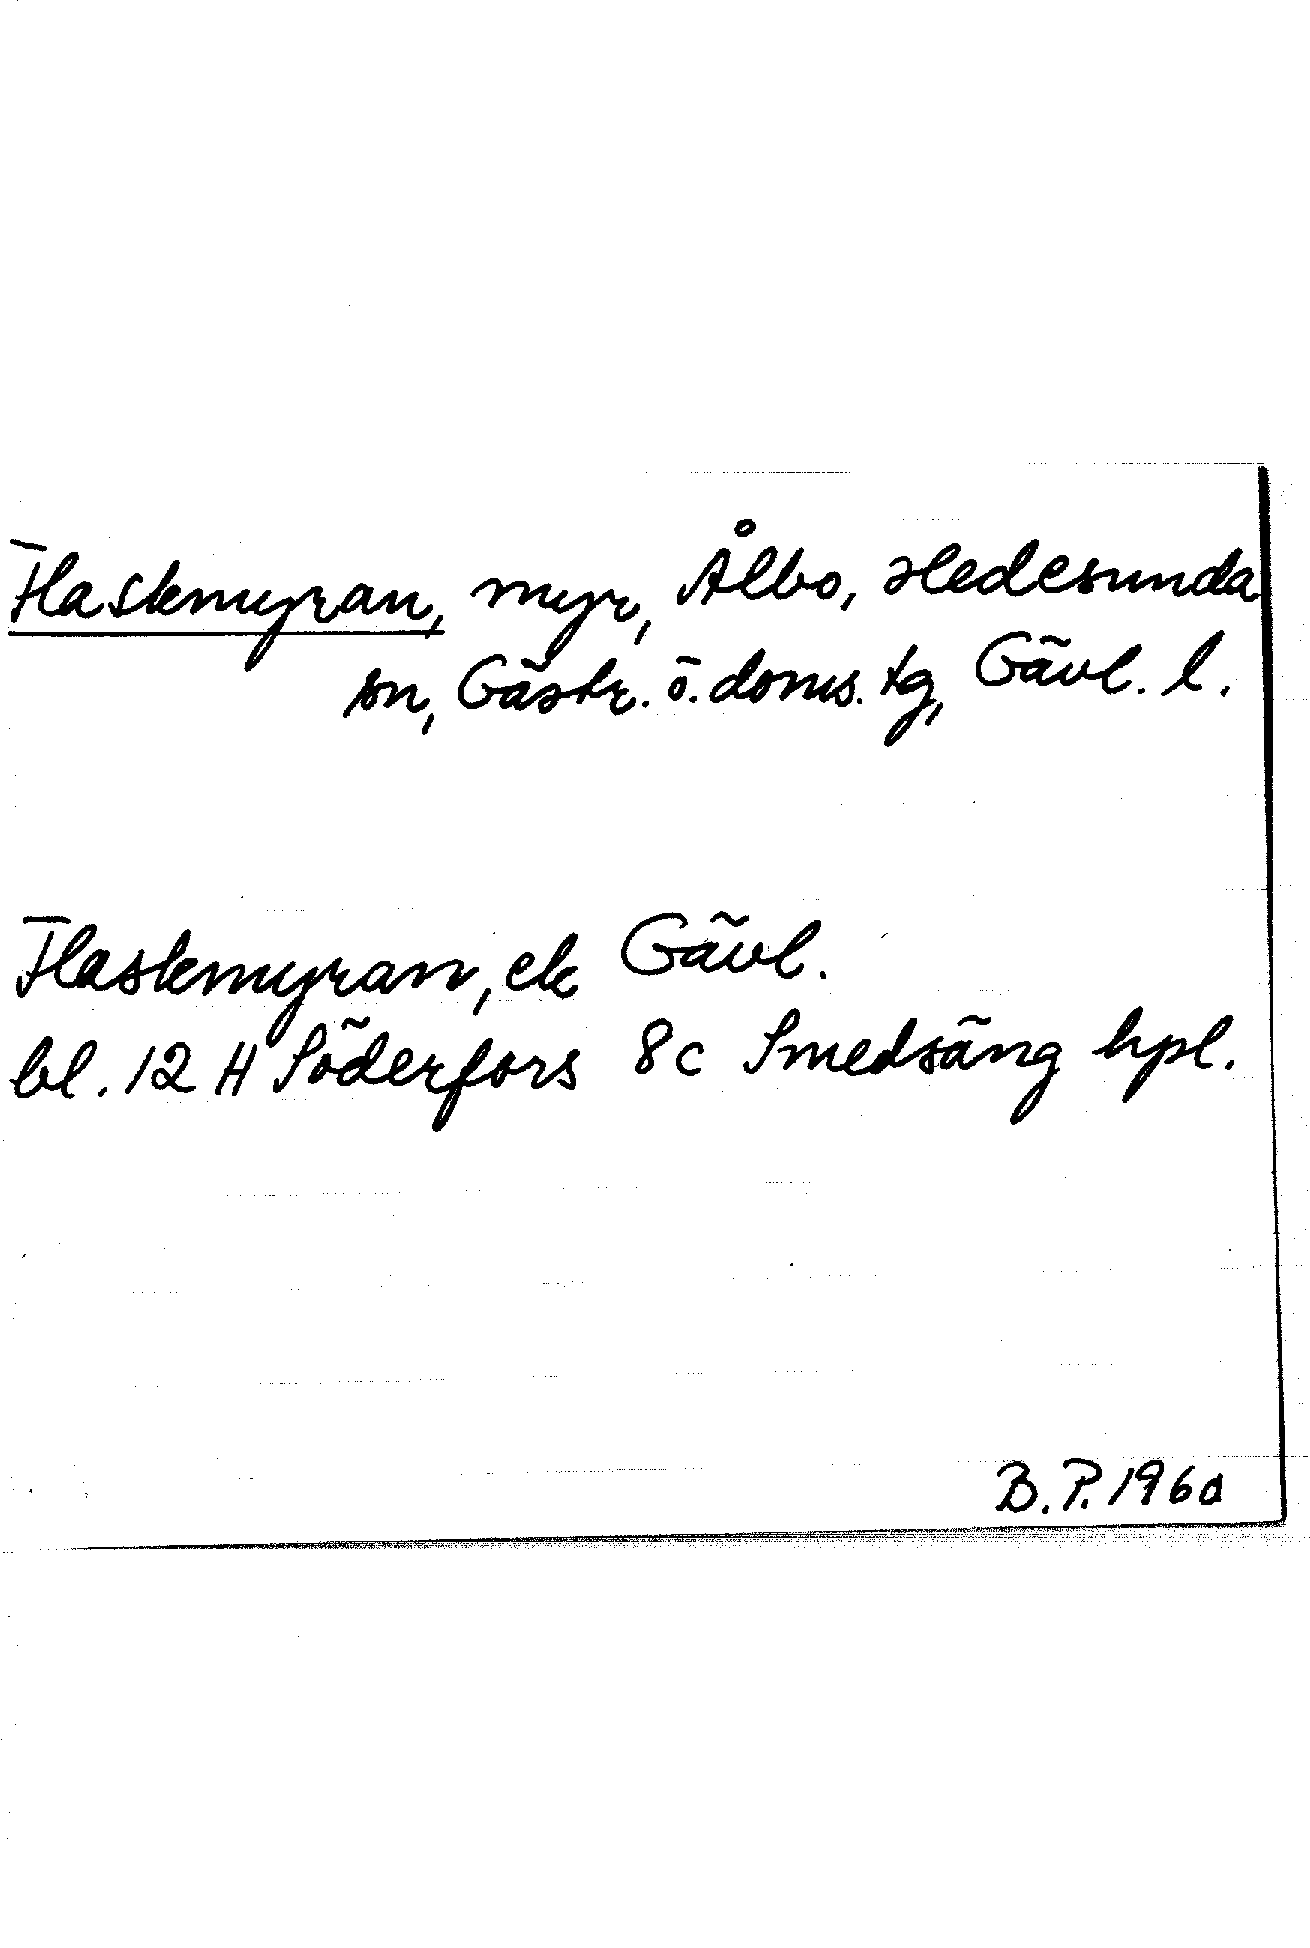 Flaskmyran, myr, Ålbo, Hedesunda
sn, Gästr. ö. doms. tg, Gävl. l.
Flaskmyran, ek Gävl.
bl. 12 H Söderfors 8c Smedsäng hpl.
B.P. 1960